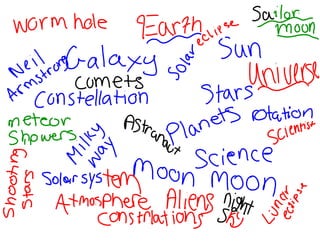 worm hole
Earth
Sailor
moon
Solar eclipse
Sun
Neil
Armstrong
Galaxy
comets
Universe
Constellation
Stars
meteor
showers
Milky
way
Astranaut
Planets
rotation
Scientist
Science
Shooting
Stars
Solar system
moon
moon
Atmosphere
Aliens
night
Sky
constilations
Lunar
eclipse